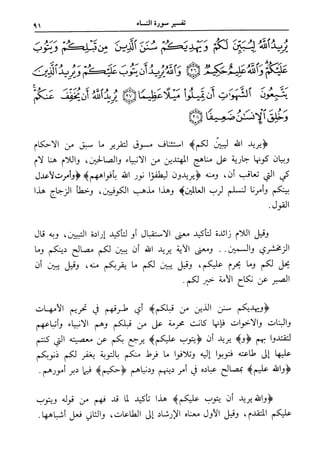 تفسير سورة النساء
٩١
يُرِيدُ اللَّهُ لِيُبَيِّنَ لَكُمْ وَيَهْدِيَكُمْ سُنَنَ الَّذِينَ مِن قَبْلِكُمْ وَيَتُوبَ
عَلَيْكُمْ وَاللَّهُ عَلِيمٌ حَكِيمٌ ﴿٢٦﴾ وَاللَّهُ يُرِيدُ أَن يَتُوبَ عَلَيْكُمْ وَيُرِيدُ الَّذِينَ
يَتَّبِعُونَ الشَّهَوَاتِ أَن تَمِيلُوا مَيْلًا عَظِيمًا ﴿٢٧﴾ يُرِيدُ اللَّهُ أَن يُخَفِّفَ عَنكُمْ
وَخُلِقَ الْإِنسَانُ ضَعِيفًا ﴿٢٨﴾
﴿يريد الله ليبيّن لكم﴾ استئناف مسوق لتقرير ما سبق من الاحكام
وبيان كونها جارية على مناهج المهتدين من الانبياء والصالحين، واللام هنا لام
كي التي تعاقب أن، ومنه ﴿يريدون ليطفؤا نور الله بأفواههم﴾ ﴿وأمرت لأعدل
بينكم وأمرنا لنسلم لرب العالمين﴾ وهذا مذهب الكوفيين، وخطأ الزجاج هذا
القول.
وقيل اللام زائدة لتأكيد معنى الاستقبال أو لتأكيد إرادة التبيين، وبه قال
الزمخشري والسمين.. ومعنى الآية يريد الله أن يبين لكم مصالح دينكم وما
يحل لكم وما يحرم عليكم، وقيل يبين لكم ما يقربكم منه، وقيل يبين أن
الصبر عن نكاح الأمة خير لكم.
﴿ويهديكم سنن الذين من قبلكم﴾ أي طرقهم في تحريم الأمهات
والبنات والاخوات فإنها كانت محرمة على من قبلكم وهم الانبياء وأتباعهم
لتقتدوا بهم ﴿و﴾ يريد أن ﴿يتوب عليكم﴾ يرجع بكم عن معصيته التي كنتم
عليها إلى طاعته فتوبوا إليه وتلافوا ما فرط منكم بالتوبة يغفر لكم ذنوبكم
﴿والله عليم﴾ بمصالح عباده في أمر دينهم ودنياهم ﴿حكيم﴾ فيما دبر أمورهم.
﴿والله يريد أن يتوب عليكم﴾ هذا تأكيد لما قد فهم من قوله ويتوب
عليكم المتقدم، وقيل الأول معناه الإرشاد إلى الطاعات، والثاني فعل أشباهها.